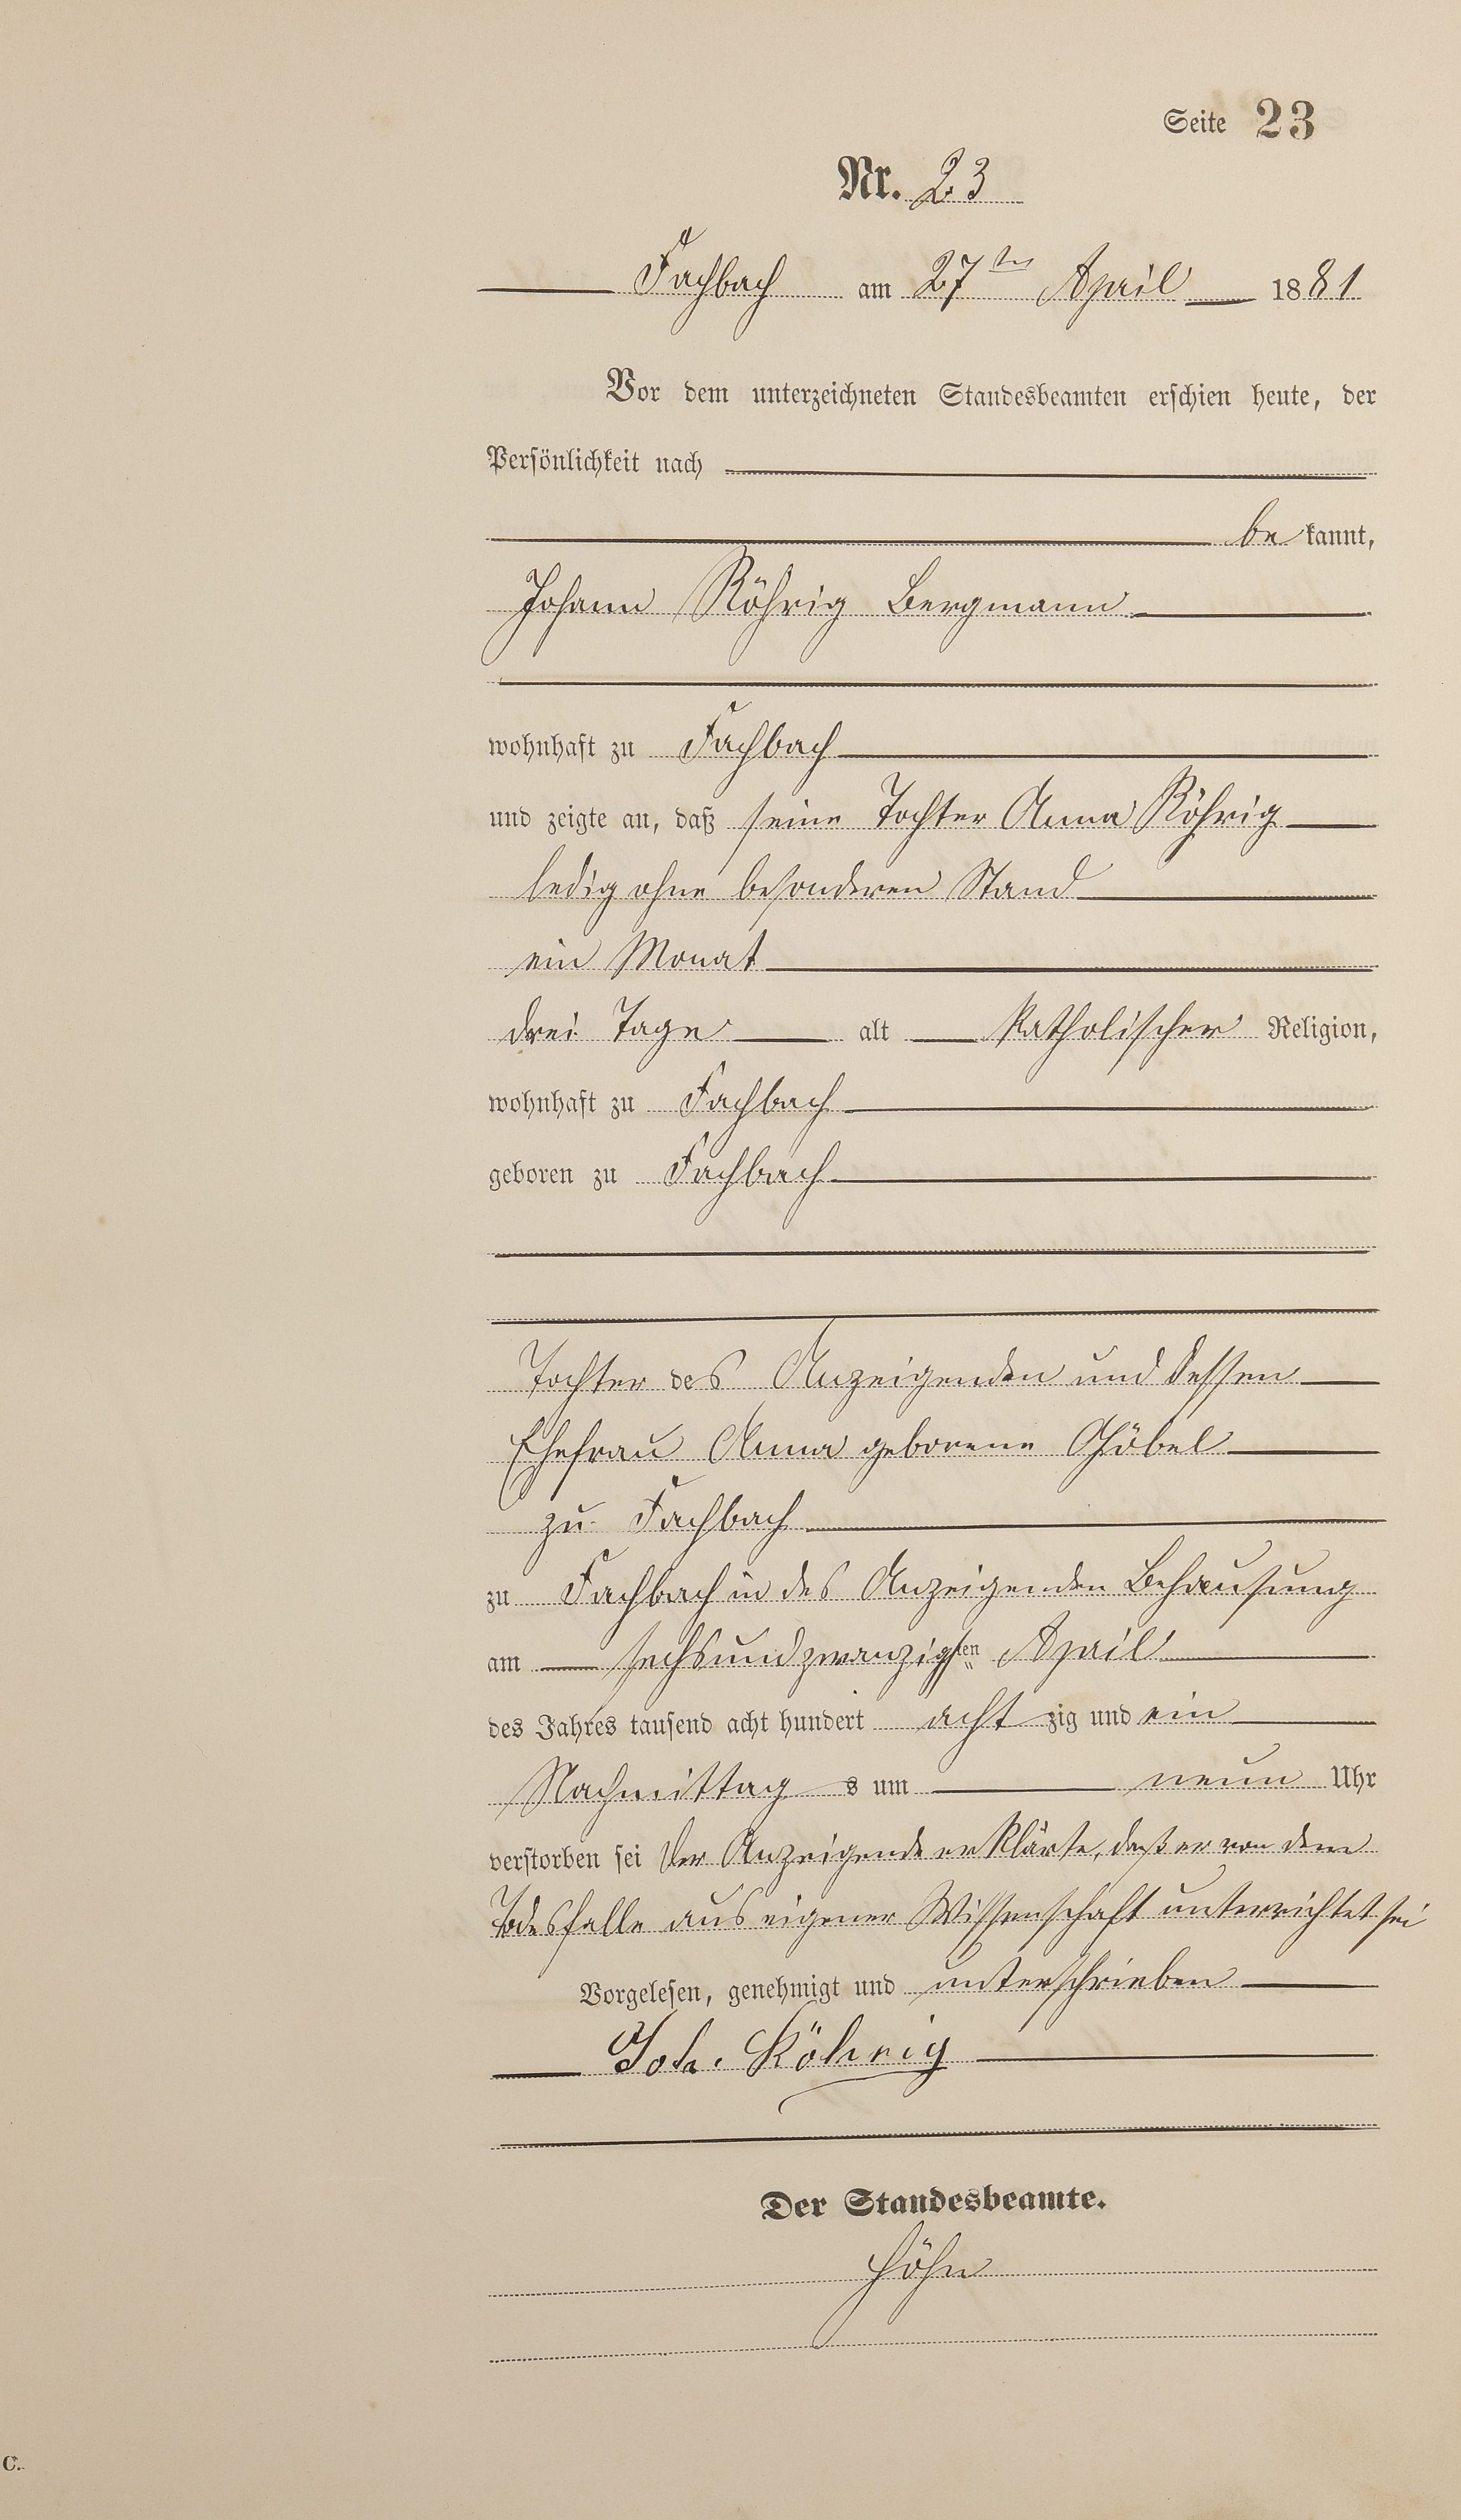 Seite 23
Nr. 23
Fachbach am 27ten April 1881
Vor dem unterzeichneten Standesbeamten erschien heute, der
Persönlichkeit nach
bekannt,
Johann Röhrig Bergmann
wohnhaft zu Fachbach
und zeigte an, daß seine Tochter Anna Röhrig
ledig ohne besonderen Stand
ein Monat
drei Tage alt katholischer Religion,
wohnhaft zu Fachbach
geboren zu Fachbach
Tochter des Anzeigenden und dessen
Ehefrau Anna geborene Göbel
zu Fachbach
zu Fachbach in des Anzeigenden Behausung
am sechsundzwanzigsten April
des Jahres tausend acht hundert achtzig und ein
Nachmittags um neun Uhr
verstorben sei Der Anzeigende erklärte, daß er von dem
Todesfalle aus eigener Wissenschaft unterrichtet sei
Vorgelesen, genehmigt und unterschrieben
Joh. Röhrig
Der Standesbeamte.
Höhn
C.